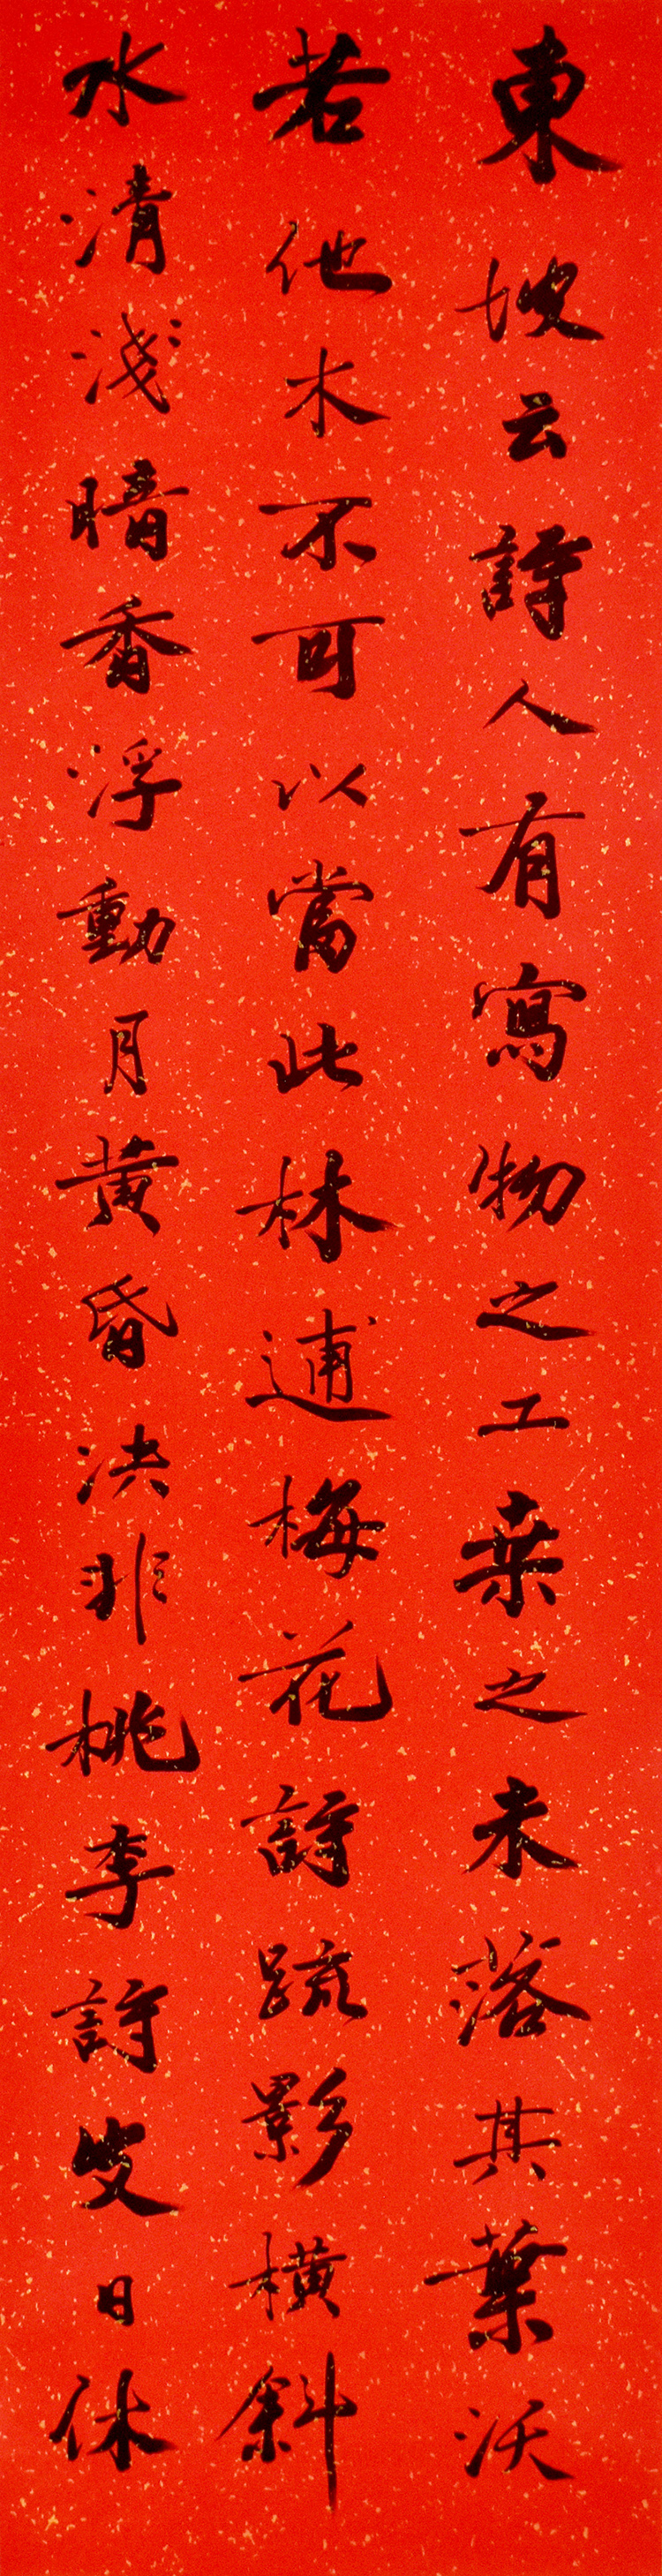 東坡云詩人有寫物之工桒之未落其葉沃
若他木不可以當此林逋梅花詩疏影橫斜
水清淺暗香浮動月黃昏决非桃李詩皮日休